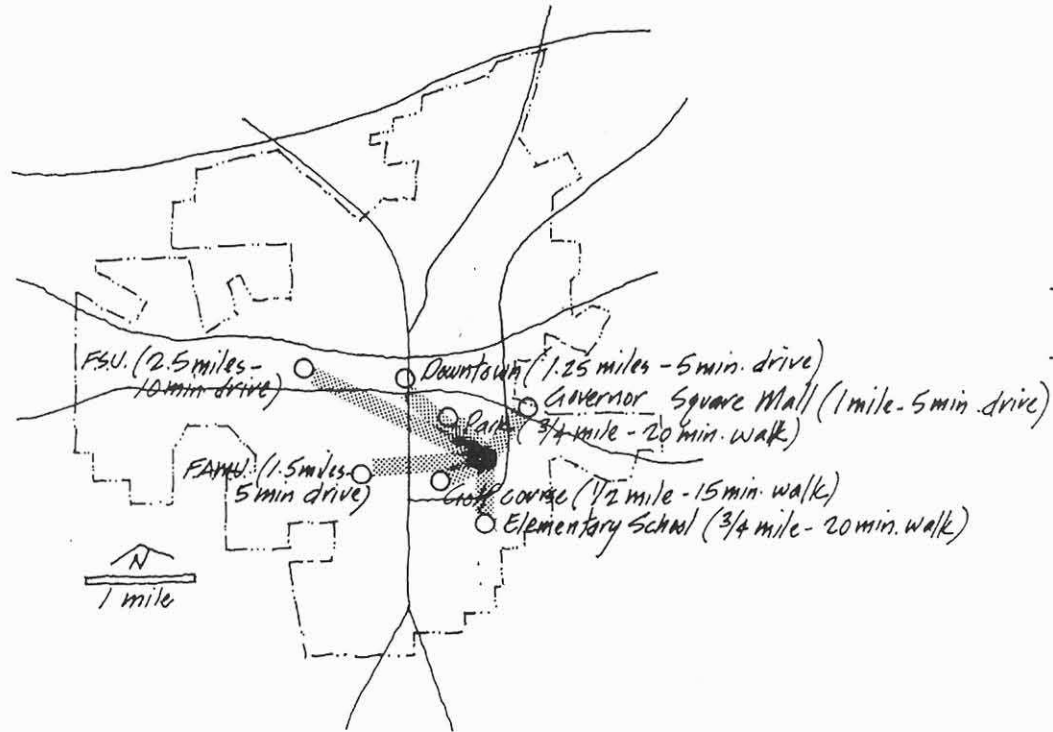 F.S.U. (2.5 miles-
10 min drive)
Downtown (1.25 miles - 5 min. drive)
Governor Square Mall (1 mile - 5 min. drive)
Park (3/4 mile - 20 min. walk)
FAMU. (1.5 miles-
5 min drive)
Golf course (1/2 mile - 15 min. walk)
Elementary School (3/4 mile - 20 min. walk)
N
1 mile